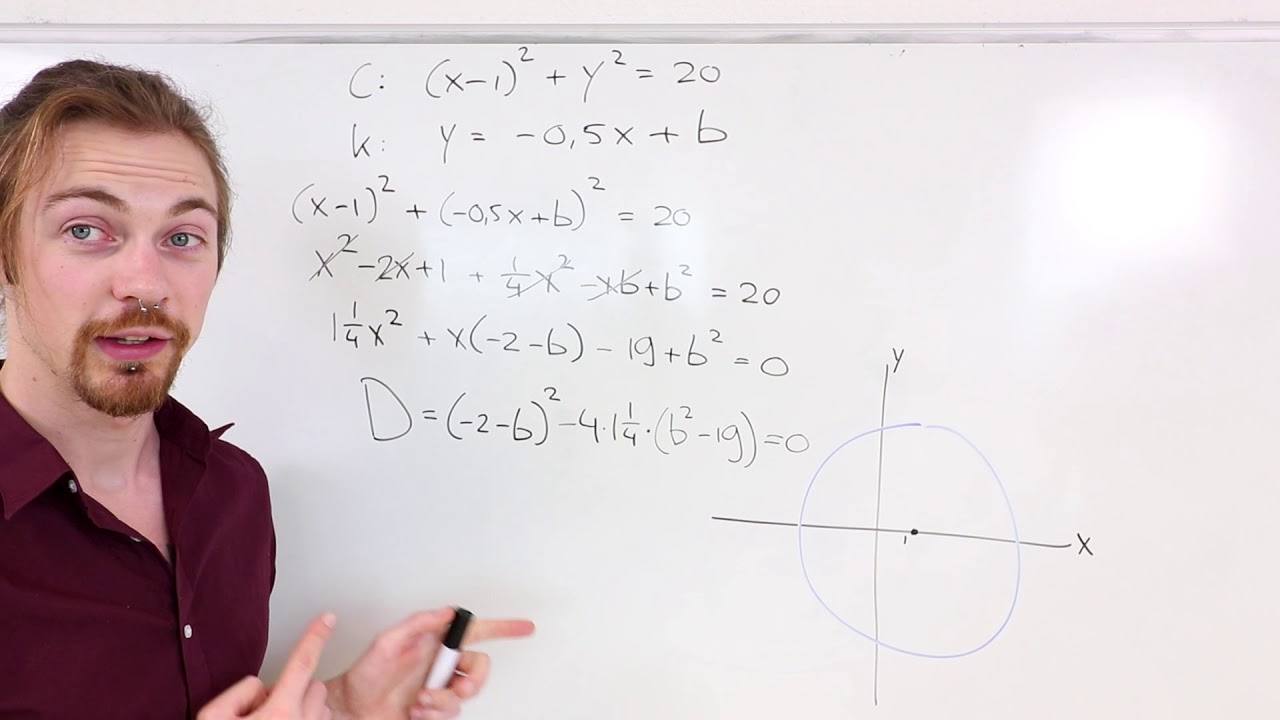 C: (x-1)² + y² = 20
k: y = -0,5x + b
(x-1)² + (-0,5x+b)² = 20
x² - 2x + 1 + ¼x² - xb + b² = 20
1¼x² + x(-2-b) - 19 + b² = 0
D = (-2-b)² - 4·1¼·(b²-19) = 0
y
1
x